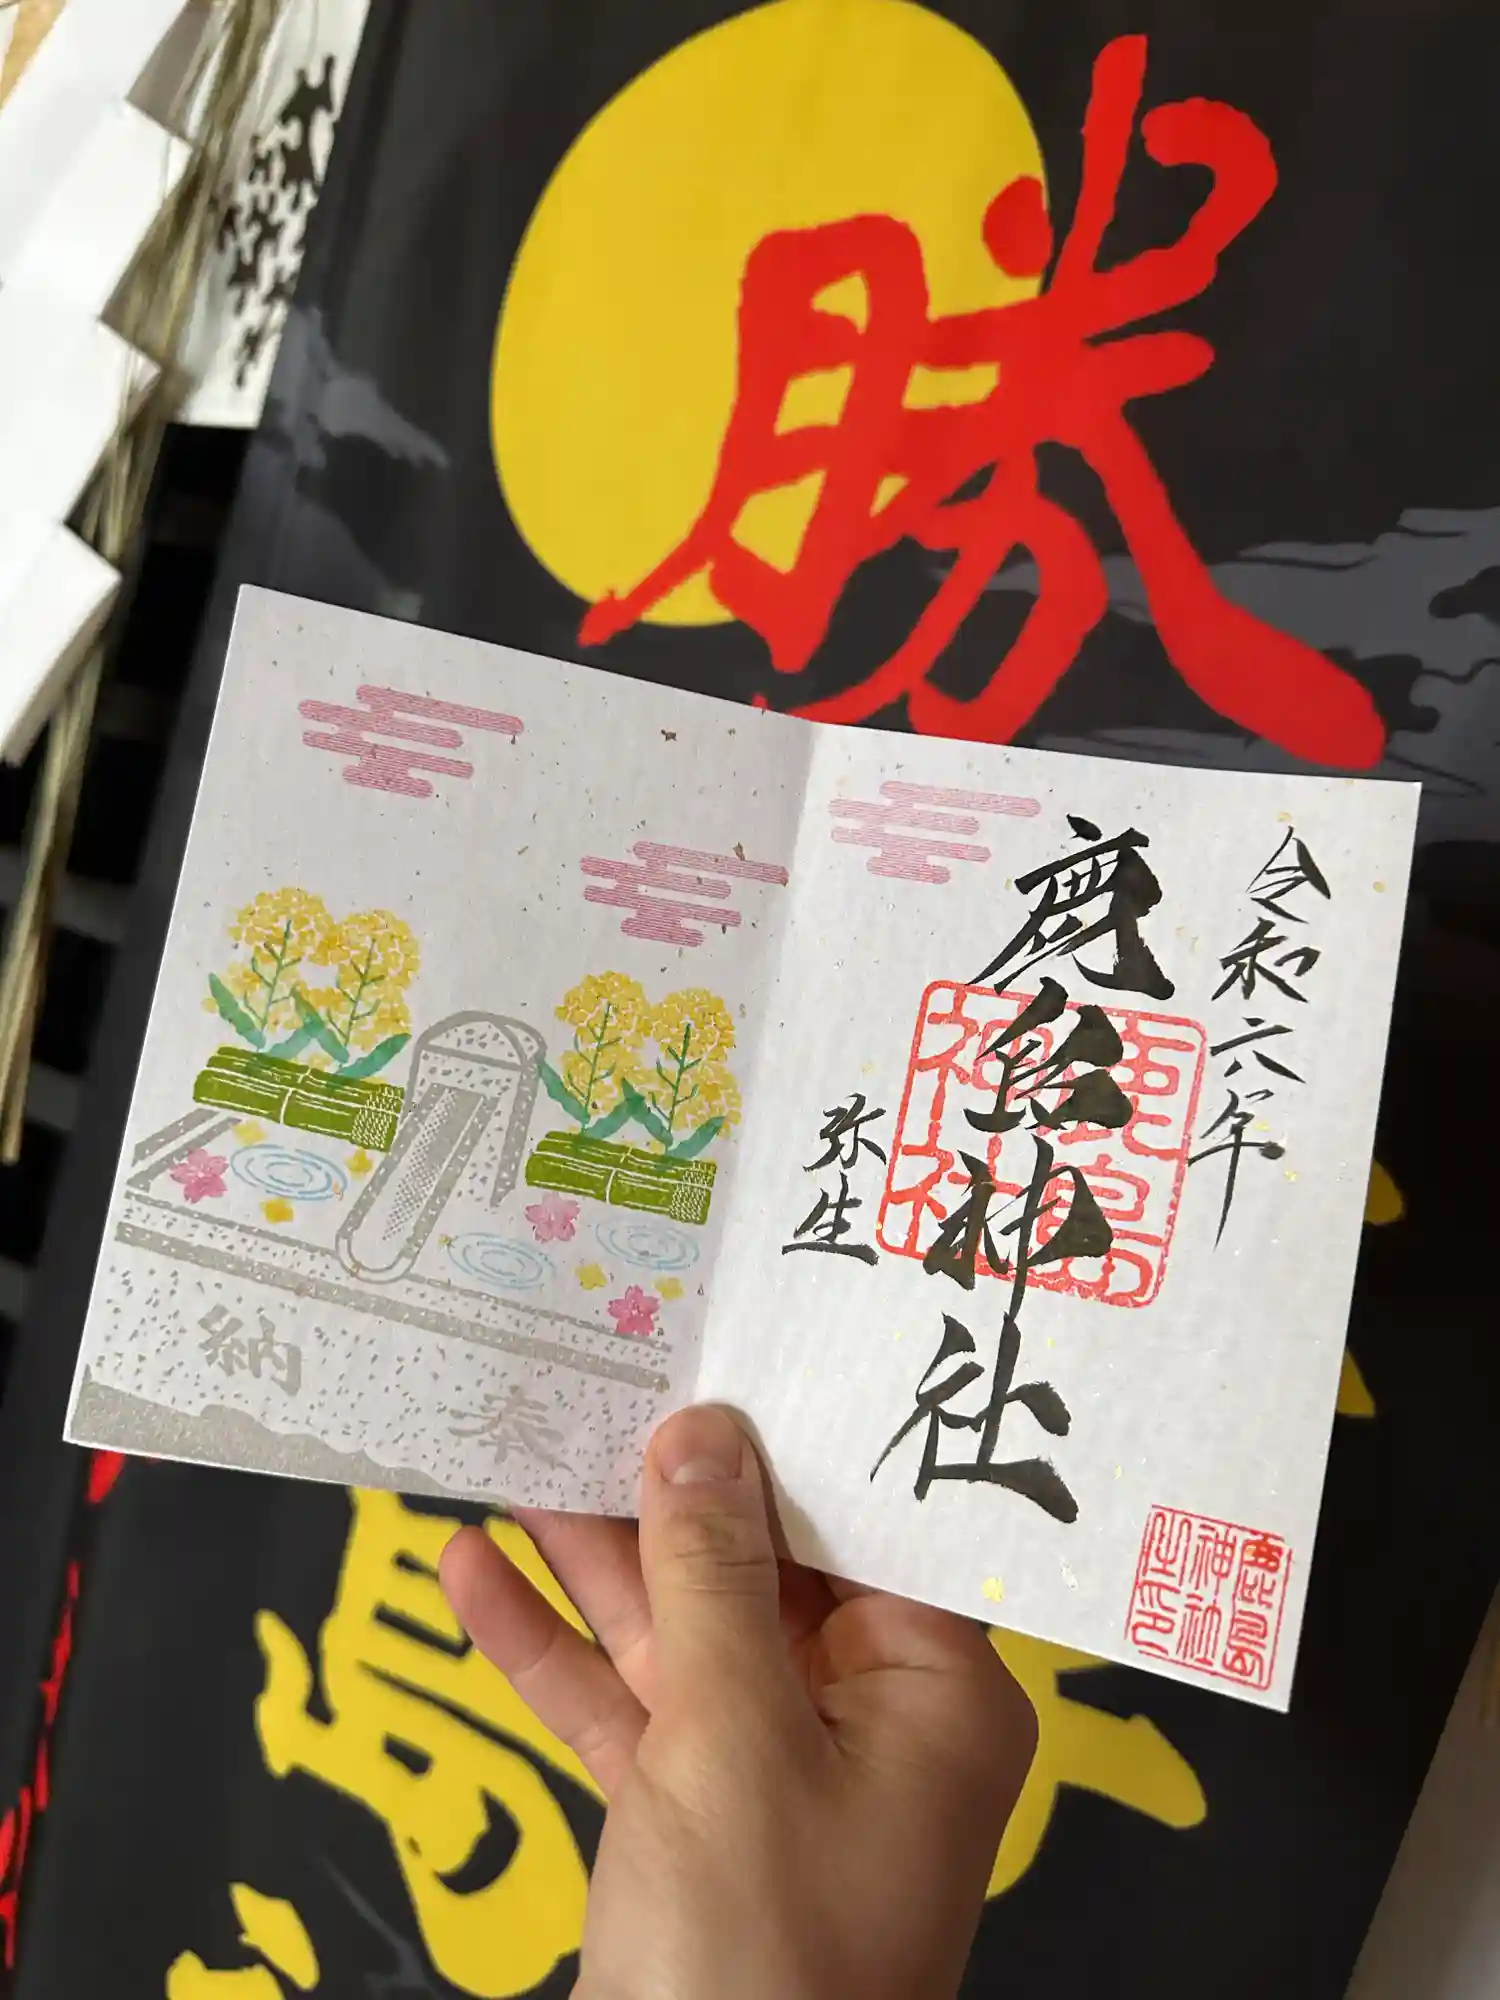 勝
令和六年
鹿島神社
弥生
鹿島神社
鹿島神社之印
奉納